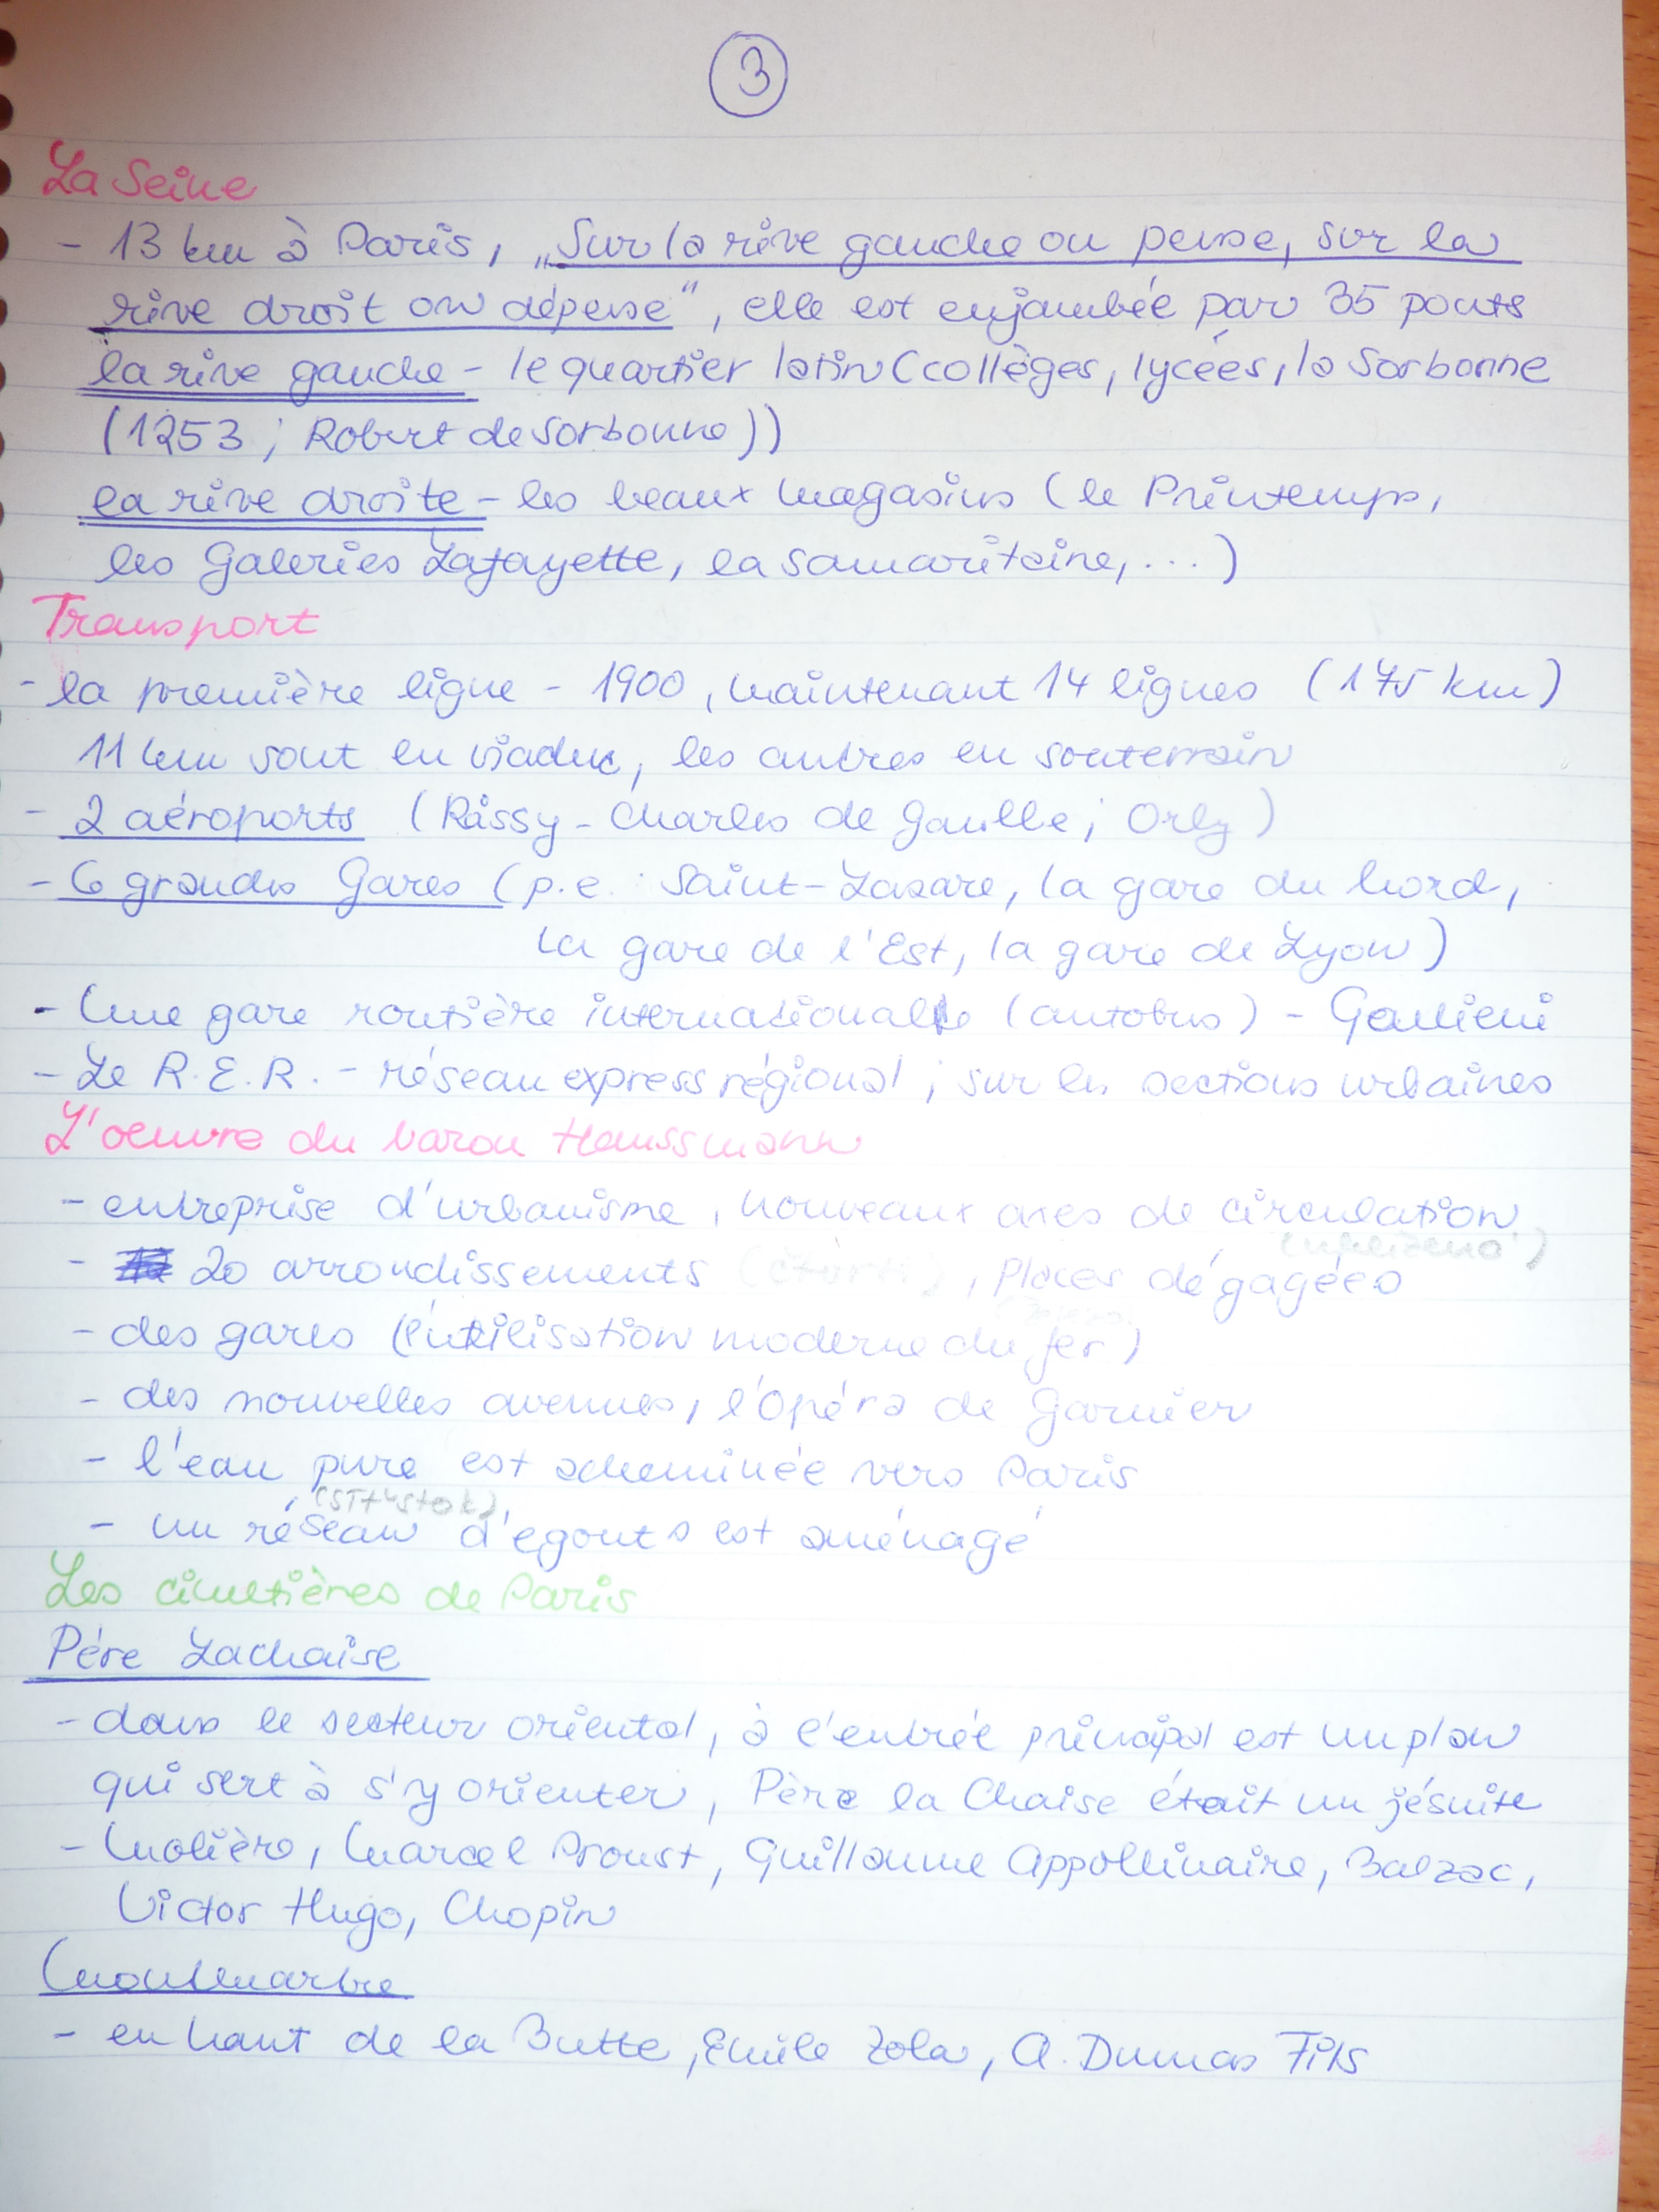 3
La Seine
- 13 km à Paris, „Sur la rive gauche on pense, sur la
rive droit on dépense“, elle est enjambée par 35 ponts
la rive gauche - le quartier latin (collèges, lycées, la Sorbonne
(1253 ; Robert de Sorbonne))
la rive droite - les beaux magasins (le Printemps,
les Galeries Lafayette, la Samaritaine, ...)
Transport
- la première ligne - 1900, maintenant 14 lignes (175 km)
11 km sont en viaduc, les autres en souterrain
- 2 aéroports (Roissy - Charles de Gaulle ; Orly)
- 6 grandes Gares (p.e. Saint-Lazare, la gare du Nord,
la gare de l'Est, la gare de Lyon)
- Une gare routière internationale (autobus) - Gallieni
- Le R.E.R. - réseau express régional ; sur les sections urbaines
L'oeuvre du baron Haussmann
- entreprise d'urbanisme, nouveaux axes de circulation
- 20 arrondissements, places dégagées
- des gares (l'utilisation moderne du fer)
- des nouvelles avenues, l'Opéra de Garnier
- l'eau pure est acheminée vers Paris
- un réseau d'egouts est aménagé
Les cimetières de Paris
Pére Lachaise
- dans le secteur oriental, à l'entrée principal est un plan
qui sert à s'y orienter, Père la Chaise était un jésuite
- Molière, Marcel Proust, Guillaume Appollinaire, Balzac,
Victor Hugo, Chopin
Montmartre
- en haut de la Butte, Emile Zola, A. Dumas Fils